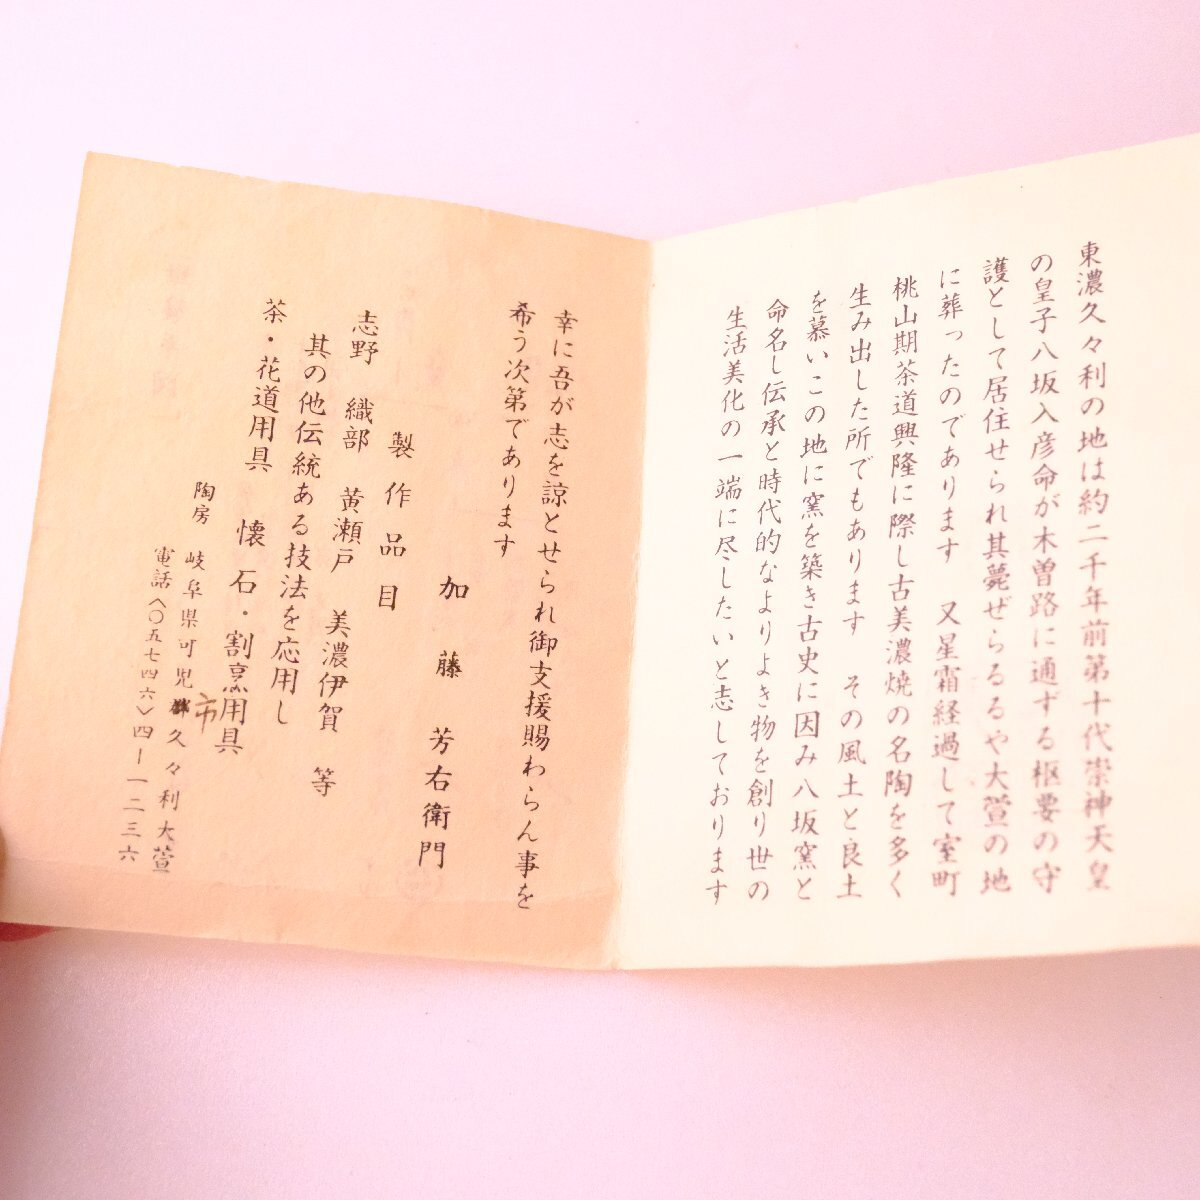 東濃久々利の地は約二千年前第十代崇神天皇
の皇子八坂入彦命が木曽路に通ずる枢要の守
護として居住せられ其薨ぜらるるや大萱の地
に葬ったのであります　又星霜経過して室町
桃山期茶道興隆に際し古美濃焼の名陶を多く
生み出した所でもあります　その風土と良土
を慕いこの地に窯を築き古史に因み八坂窯と
命名し伝承と時代的なよりよき物を創り世の
生活美化の一端に尽したいと志しております
幸に吾が志を諒とせられ御支援賜わらん事を
希う次第であります
加藤　芳右衛門
製作品目
志野　織部　黄瀬戸　美濃伊賀　等
其の他伝統ある技法を応用し
茶・花道用具　懐石・割烹用具
陶房　岐阜県可児市久々利大萱
電話〈〇五七四六〉四ー一二三六